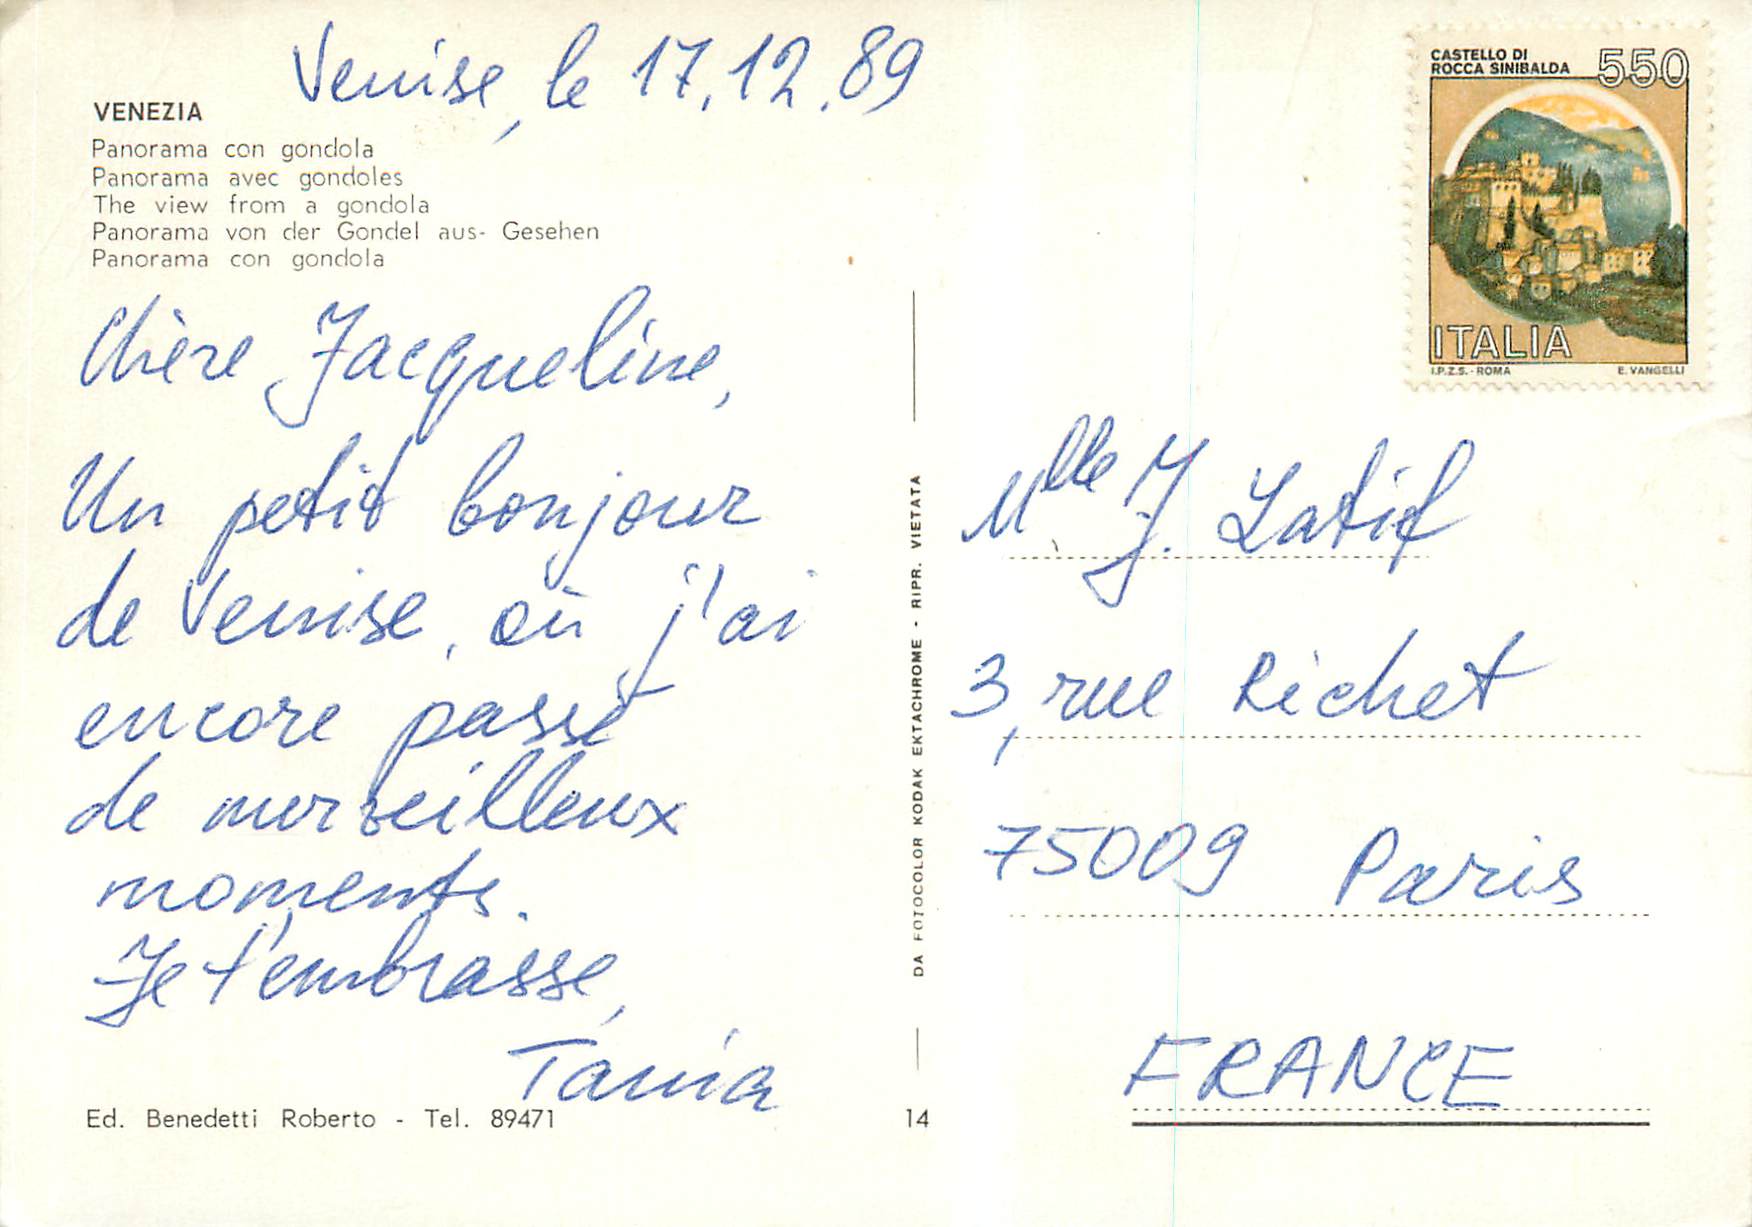 Venise, le 17.12.89
VENEZIA
Panorama con gondola
Panorama avec gondoles
The view from a gondola
Panorama von der Gondel aus- Gesehen
Panorama con gondola
Chère Jacqueline,
Un petit bonjour
de Venise, où j'ai
encore passé
de merveilleux
moments.
Je t'embrasse,
Tania
Ed. Benedetti Roberto - Tel. 89471
14
DA FOTOCOLOR KODAK EKTACHROME - RIPR. VIETATA
CASTELLO DI
ROCCA SINIBALDA
550
ITALIA
I.P.Z.S. - ROMA E. VANGELLI
Mlle J. Latif
3, rue Richet
75009 Paris
FRANCE